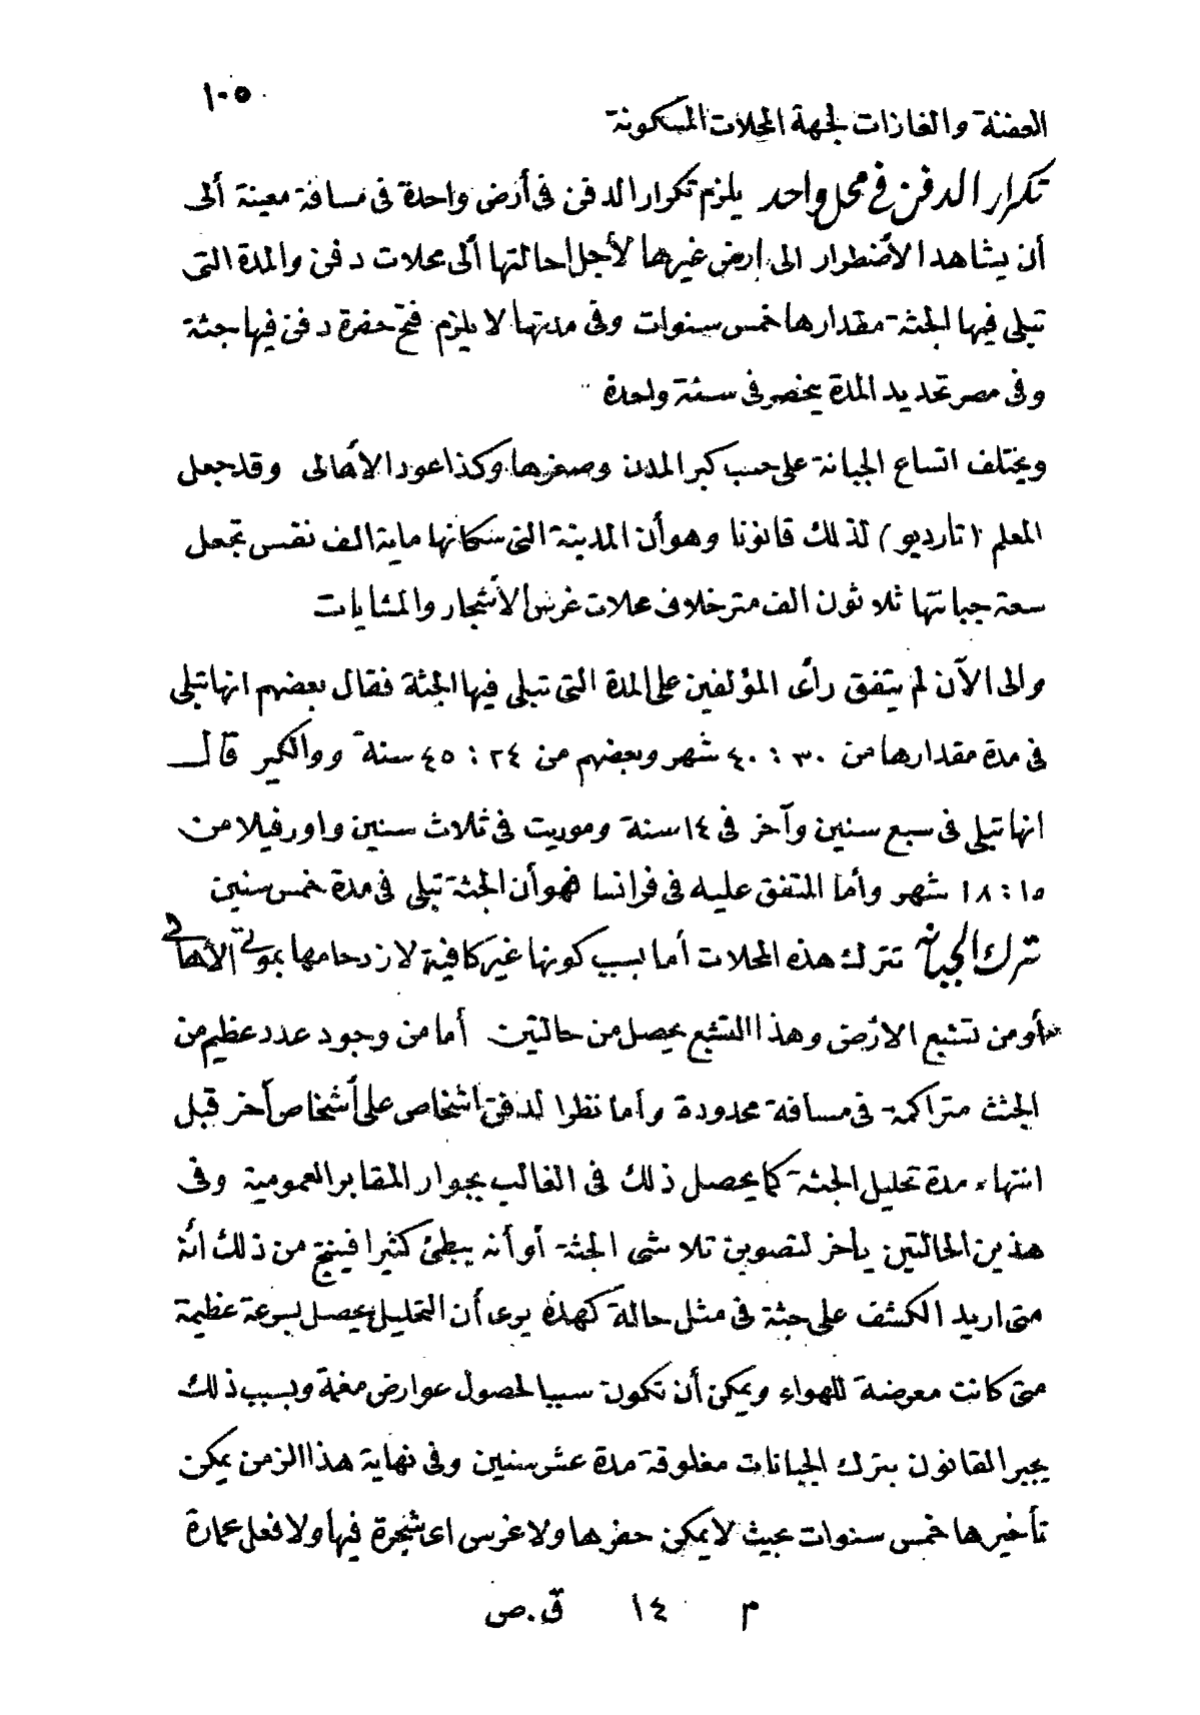 ١٠٥
العفنة والغازات لجهة المحلات المسكونة
تكرار الدفن في محل واحد يلزم تكرار الدفن فى أرض واحدة فى مسافة معينة ألى
أن يشاهد الأضطرار الى ارض غيرها لأجل احالتها ألى محلات دفن والمدة التى
تبلى فيها الجثة مقدارها خمس سنوات وفى مدتها لا يلزم فتح حفرة دفن فيها جثة
وفى مصر تحديد المدة ينحصر فى سنة واحدة
ويختلف اتساع الجبانة على حسب كبر المدن وصغرها وكذا عود الأهالى وقد جعل
المعلم (تارديو) لذلك قانونا وهو أن المدينة التى سكانها ماية الف نفس تجعل
سعة جبانتها ثلاثون الف متر خلاف محلات غرس الأشجار والمشايات
والى الآن لم يتفق رأى المؤلفين على المدة التى تبلى فيها الجثة فقال بعضهم انها تبلى
فى مدة مقدارها من ٣٠ : ٤٠ شهر وبعضهم من ٢٤ : ٤٥ سنة ووالكير قال
انها تبلى فى سبع سنين وآخر فى ١٤ سنة وموريت فى ثلاث سنين واورفيلا من
١٥ : ١٨ شهر وأما المتفق عليه فى فرانسا فهو أن الجثة تبلى فى مدة خمس سنين
ترك الجبانة تترك هذه المحلات أما بسبب كونها غير كافية لازدحامها بموتى الأهالى
أو من تشبع الارض وهذا التشبع يحصل من حالتين أما من وجود عدد عظيم من
الجثث متراكمة فى مسافة محدودة وأما نظرا لدفن اشخاص على أشخاص أخر قبل
انتهاء مدة تحليل الجثة كما يحصل ذلك فى الغالب بجوار المقابر العمومية وفى
هذين الحالتين يأخر لتصوبن تلاشى الجثة أو أنه يبطئ كثيرا فينتج من ذلك انه
متى اريد الكشف على جثة فى مثل حالة كهذه يرى أن التحليل يحصل بسرعة عظيمة
متى كانت معرضة للهواء ويمكن أن تكون سببا لحصول عوارض مغمة وبسبب ذلك
يجبر القانون بترك الجبانات مغلوقة مدة عشر سنين وفى نهاية هذا الزمن يمكن
تأخيرها خمس سنوات بحيث لا يمكن حفرها ولا غرس اى شجرة فيها ولا فعل عمارة
م ١٤ ق.ص